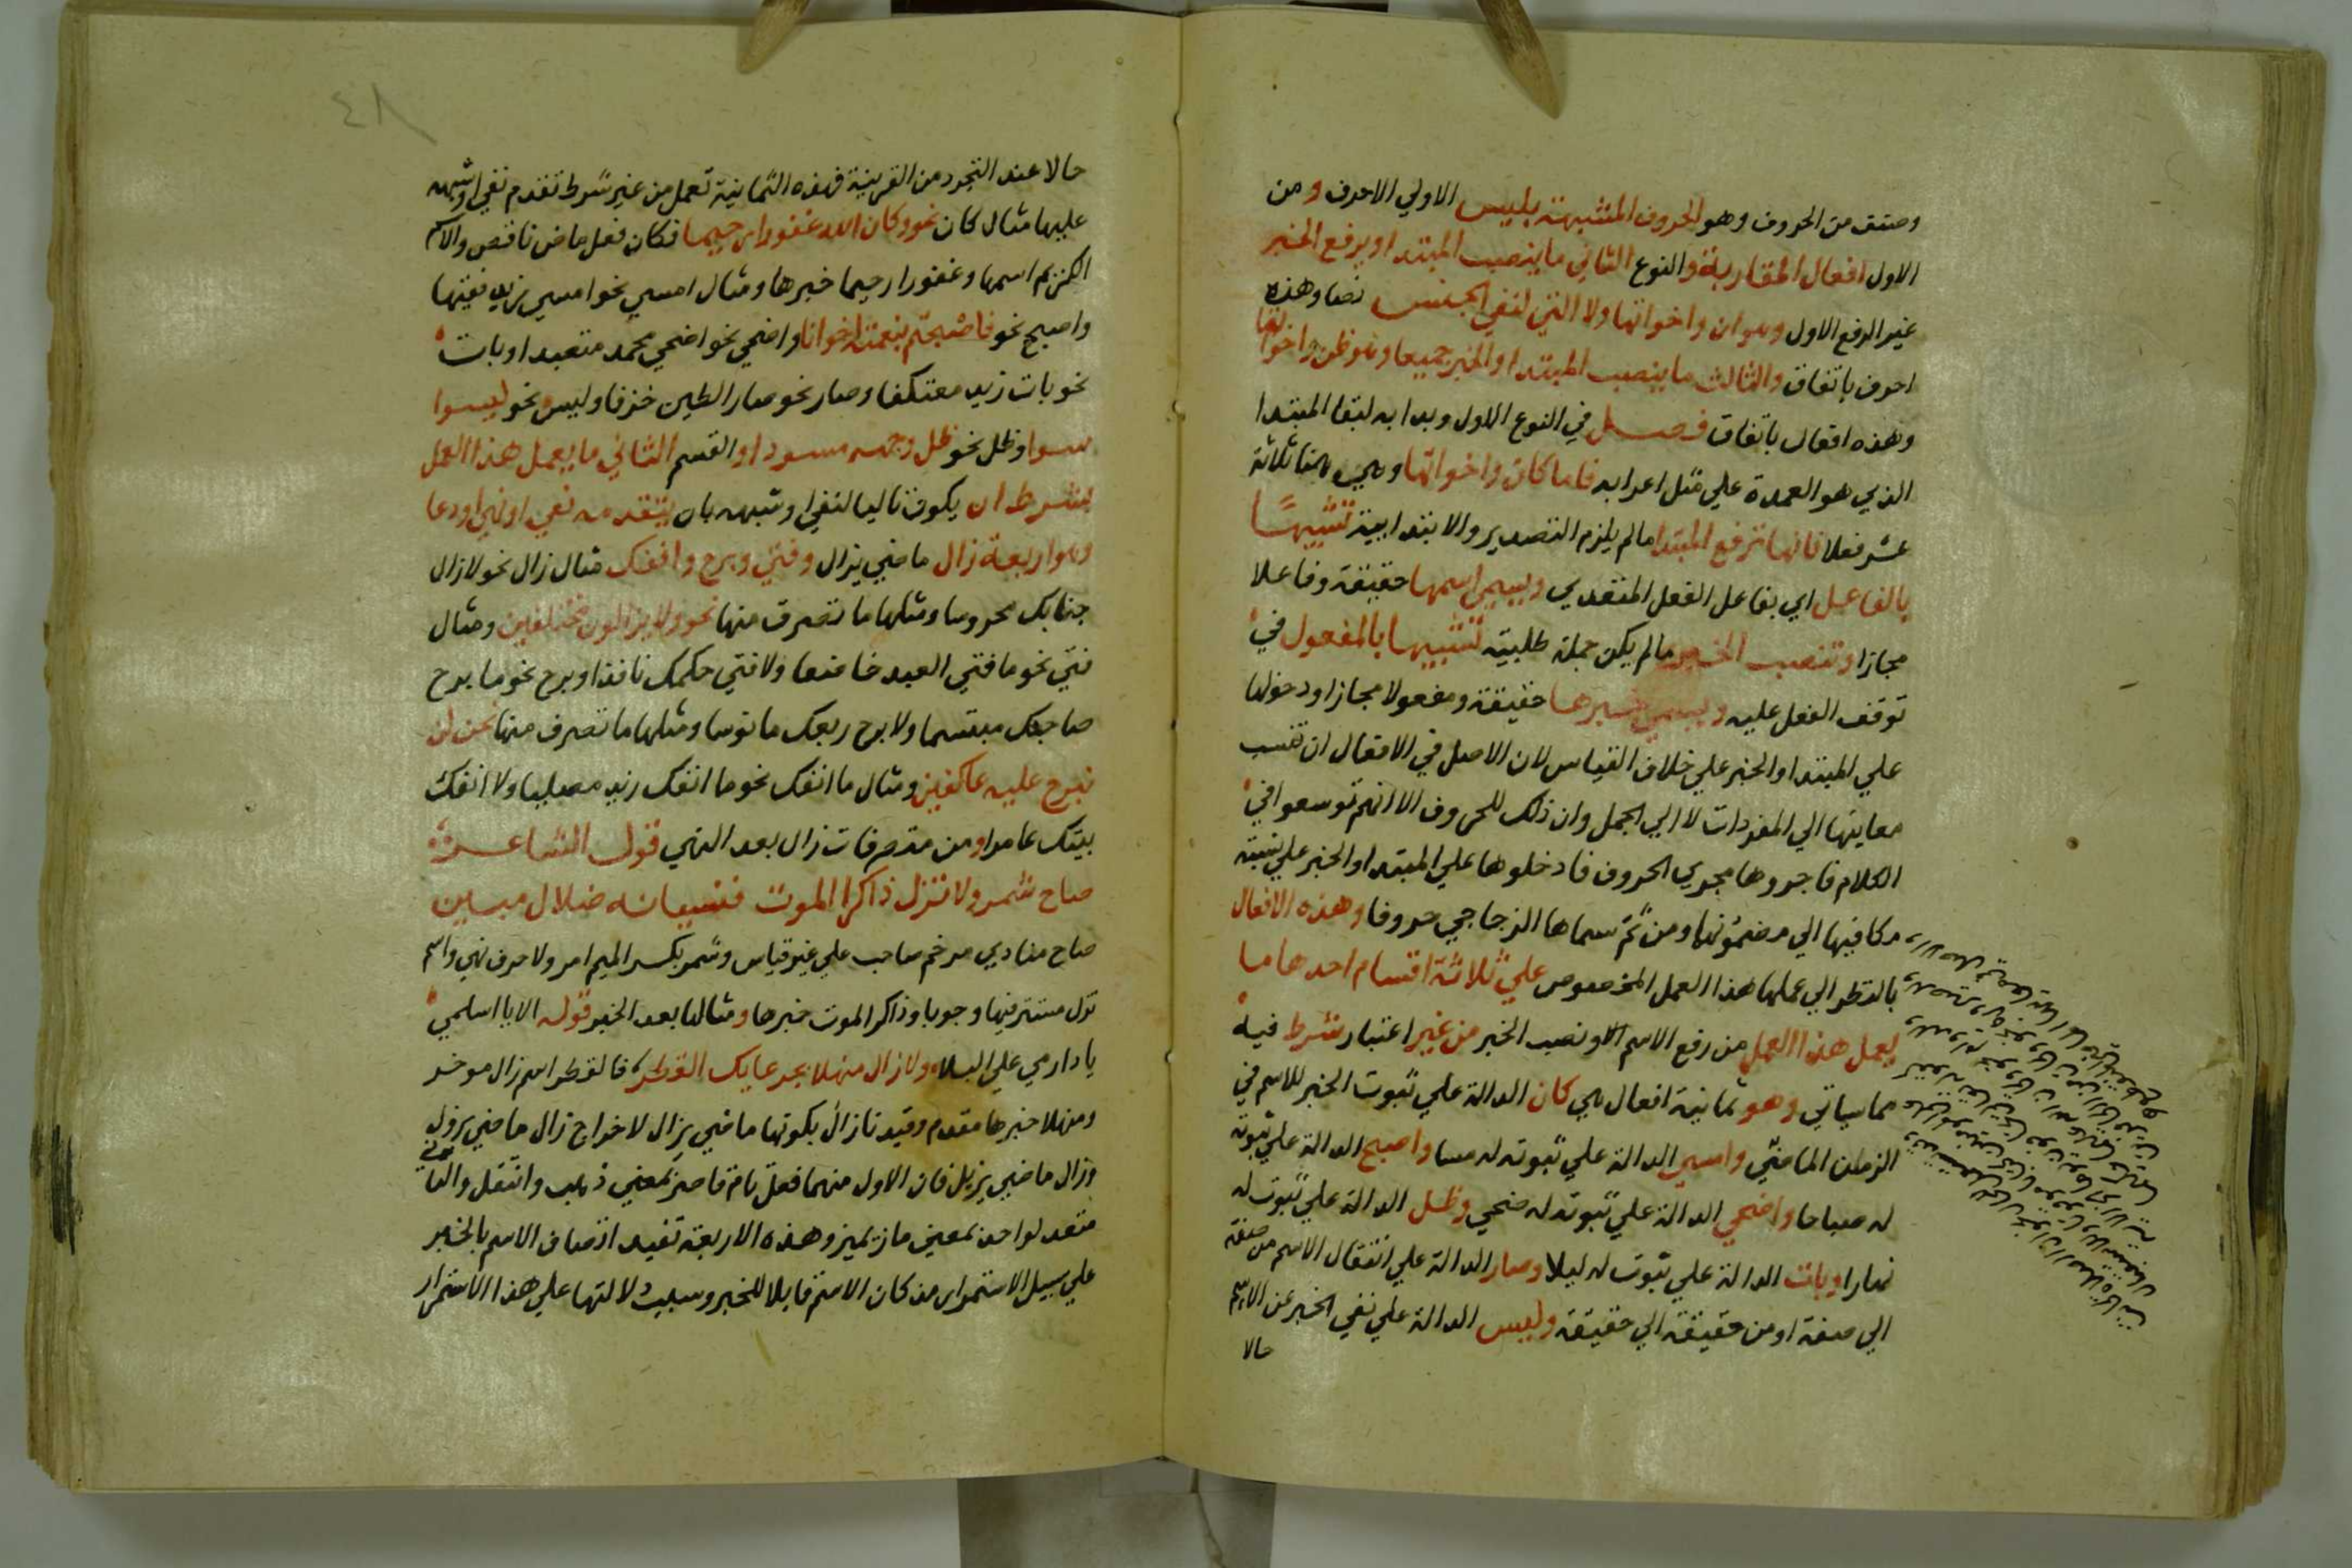 وصنف من الحروف وهو الحروف المشبهة بليس الاولي الاحرف ومن
الاول افعال المقاربة والنوع الثاني ما ينصب المبتدا ويرفع الخبر
غير الرفع الاول وهو ان واخواتها ولا التي لنفي الجنس نصا وهذه
احرف باتفاق والثالث ما ينصب المبتدا والخبر جميعا وهو ظن واخواتها
وهذه افعال باتفاق فصل في النوع الاول وبدا به لبقا المبتدا
الذي هو العمدة علي مثل اعرابه فاما كان واخواتها وهي هنا ثلاثة
عشر فعلا فانها ترفع المبتدا ما لم يلزم التصدير والابتدايية تشبيها
بالفاعل اي بفاعل الفعل المتعدي ويسمي اسمها حقيقة وفاعلا
مجازا وتنصب الخبر ما لم يكن جملة طلبية تشبيها بالمفعول في
توقف الفعل عليه ويسمي خبرها حقيقة ومفعولا مجازا ودخولها
علي المبتدا والخبر علي خلاف القياس لان الاصل في الافعال ان تنسب
معاينها الي المفردات لا الي الجمل وان ذلك للحروف الا انهم توسعوا في
الكلام فاجروها مجري الحروف فادخلوها علي المبتدا والخبر علي نسبة
مكافيها الي مضمونها ومن ثم سماها الزجاجي حروفا وهذه الافعال
بالنظر الي عملها هذا العمل المخصوص علي ثلاثة اقسام احدها ما
يعمل هذا العمل من رفع الاسم الاو نصب الخبر من غير اعتبار شرط فيه
مما سياتي وهو ثمانية افعال هي كان الدالة علي ثبوت الخبر للاسم في
الزمان الماضي وامسي الدالة علي ثبوته له مسا واصبح الدالة علي ثبوته
له صباحا واضحي الدالة علي ثبوته له ضحي وظل الدالة علي ثبوت له
نهارا وبات الدالة علي ثبوت له ليلا وصار الدالة علي انتقال الاسم من صفة
الي صفة او من حقيقة الي حقيقة وليس الدالة علي نفي الخبر عن الاسم
حالا
٤٨
حالا عند التجرد من القرينة فهذه الثمانية تعمل من غير شرط تقدم نفي او شبهه
عليها مثال كان نحو وكان الله غفورا رحيما فكان فعل ماض ناقص والاسم
الكريم اسمها وغفورا رحيما خبرها ومثال امسي نحو امسي زيد فقيها
واصبح نحو فاصبحتم بنعمته اخوانا واضحي نحو اضحي محمد متعبدا وبات
نحو بات زيد معتكفا وصار نحو صار الطين خزفا وليس نحو ليسوا
سوا وظل نحو ظل وجهه مسودا والقسم الثاني ما يعمل هذا العمل
بشرط ان يكون تاليا لنفي او شبهه بان يتقدمه نفي او نهي او دعا
وهو اربعة زال ماضي يزال وفتي وبرح وانفك مثال زال نحو لا زال
جنابك محروسا ومثلها ما تصرف منها نحو ولا يزالون مختلفين ومثال
فتي نحو ما فتي العبد خاضعا ولا فتي حكمك نافذا وبرح نحو ما برح
صاحبك مبتسما ولا برح ربعك مانوسا ومثلها ما تصرف منها نحو لن
نبرح عليه عاكفين ومثال ما انفك نحو ما انفك زيد مصليا ولا انفك
بيتك عامرا ومن متصرفات زال بعد النهي قول الشاعر
صاح شمر ولا تزل ذاكر الموت فنسيانه ضلال مبين
صاح منادي مرخم صاحب علي غير قياس وشمر بكسر الميم امر ولا حرف نهي واسم
تزل مستتر فيها وجوبا وذاكر الموت خبرها ومثالها بعد الخبر قوله الا يا اسلمي
يا دارمي علي البلا ولا زال منهلا بجرعايك القطر فالقطر اسم زال موخر
ومنهلا خبرها مقدم وقيدنا زال بكونها ماضي يزال لاخراج زال ماضي يزول
وزال ماضي يزيل فان الاول منهما فعل تام قاصر بمعني ذهب وانتقل والثاني
متعد لواحد بمعني ماز يميز وهذه الاربعة تفيد اتصاف الاسم بالخبر
علي سبيل الاستمرار مذ كان الاسم قابلا للخبر وسبب دلالتها علي هذا الاستمرار